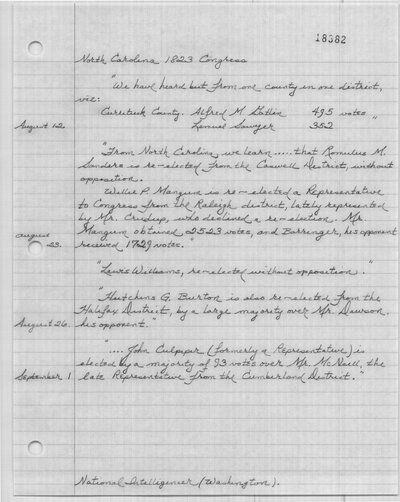 18382
North Carolina 1823 Congress
"We have heard but from one county in one district,
viz:
Currituck County. Alfred M. Gatlin 495 votes
Lemuel Sawyer 352 "
August 12.
"From North Carolina, we learn.....that Romulus M.
Sanders is re-elected from the Caswell District, without
opposition.
Willie P. Mangum is re-elected a Representative
to Congress from the Raleigh district, lately represented
by Mr. Crudup, who declined a re-election. Mr.
Mangum obtained 2523 votes, and Barringer, his opponent
received 1729 votes."
August 23.
"Lewis Williams, re-elected without opposition."
"Hutchins G. Burton is also re-elected from the
Halifax District, by a large majority over Mr. Dawson,
August 26. his opponent."
".... John Culpeper (formerly a Representative) is
elected by a majority of 93 votes over Mr. McNeill, the
September 1 late Representative from the Cumberland District."
National Intelligencer (Washington).